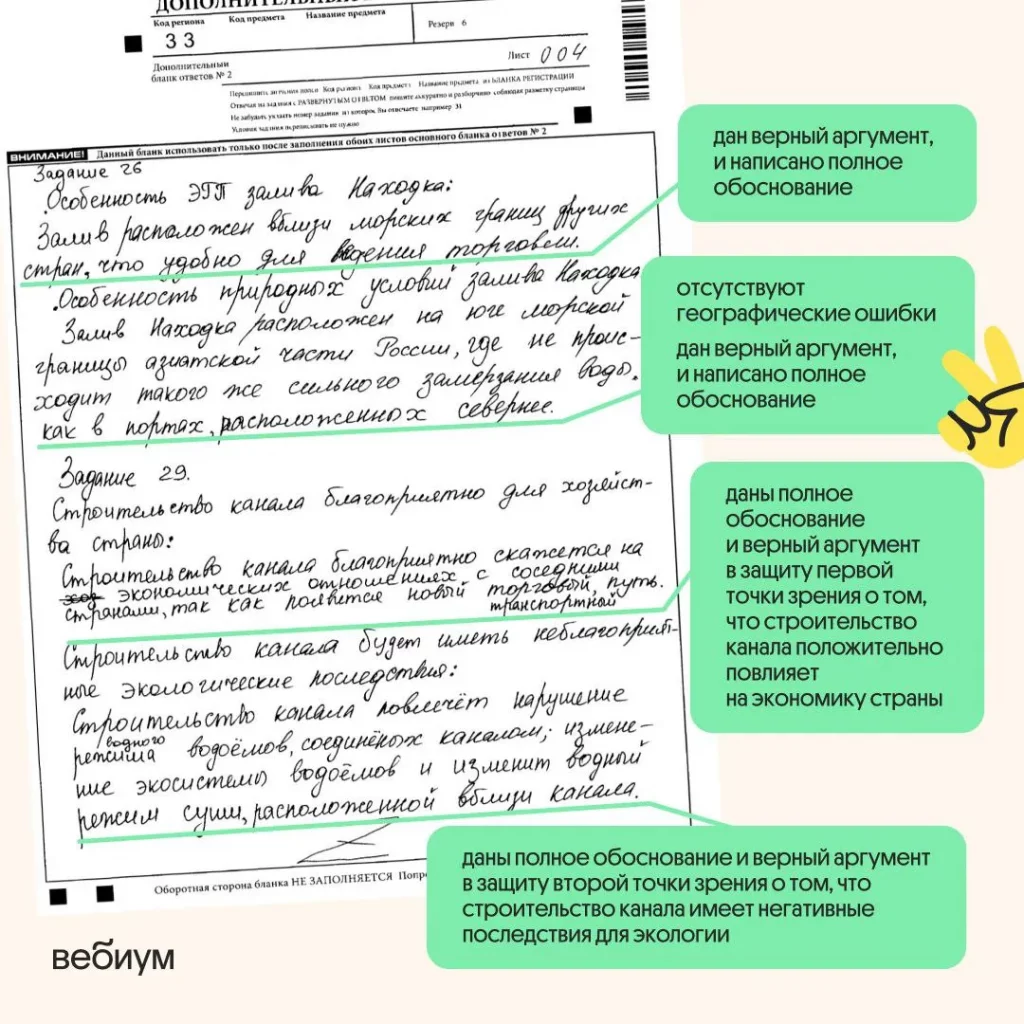 ДОПОЛНИТЕЛЬН
Код региона Код предмета Название предмета
Резерв 6
33
Дополнительный
бланк ответов № 2
Лист 004
Перепишите значения полей Код региона Код предмета Название предмета из БЛАНКА РЕГИСТРАЦИИ
Отвечая на задания с РАЗВЕРНУТЫМ ОТВЕТОМ пишите аккуратно и разборчиво соблюдая разметку страницы
Не забудьте указать номер задания на которое Вы отвечаете например 31
Условия задания переписывать не нужно
ВНИМАНИЕ! Данный бланк использовать только после заполнения обоих листов основного бланка ответов № 2
Задание 26
Особенность ЭГП залива Находка:
Залив расположен вблизи морских границ других
стран, что удобно для ведения торговли.
Особенность природных условий залива Находка
Залив Находка расположен на юге морской
границы азиатской части России, где не проис-
ходит такого же сильного замерзания воды,
как в портах, расположенных севернее.
Задание 29.
Строительство канала благоприятно для хозяйст-
ва страны:
Строительство канала благоприятно скажется на
экономических отношениях с соседними
странами, так как появится новый торговый, путь.
транспортный
Строительство канала будет иметь неблагоприят-
ные экологические последствия:
Строительство канала повлечёт нарушение
водного
режима водоёмов, соединёных каналом; измене-
ние экосистемы водоёмов и изменит водный
режим суши, расположенной вблизи канала.
Оборотная сторона бланка НЕ ЗАПОЛНЯЕТСЯ
дан верный аргумент,
и написано полное
обоснование
отсутствуют
географические ошибки
дан верный аргумент,
и написано полное
обоснование
даны полное
обоснование
и верный аргумент
в защиту первой
точки зрения о том,
что строительство
канала положительно
повлияет
на экономику страны
даны полное обоснование и верный аргумент
в защиту второй точки зрения о том, что
строительство канала имеет негативные
последствия для экологии
вебиум